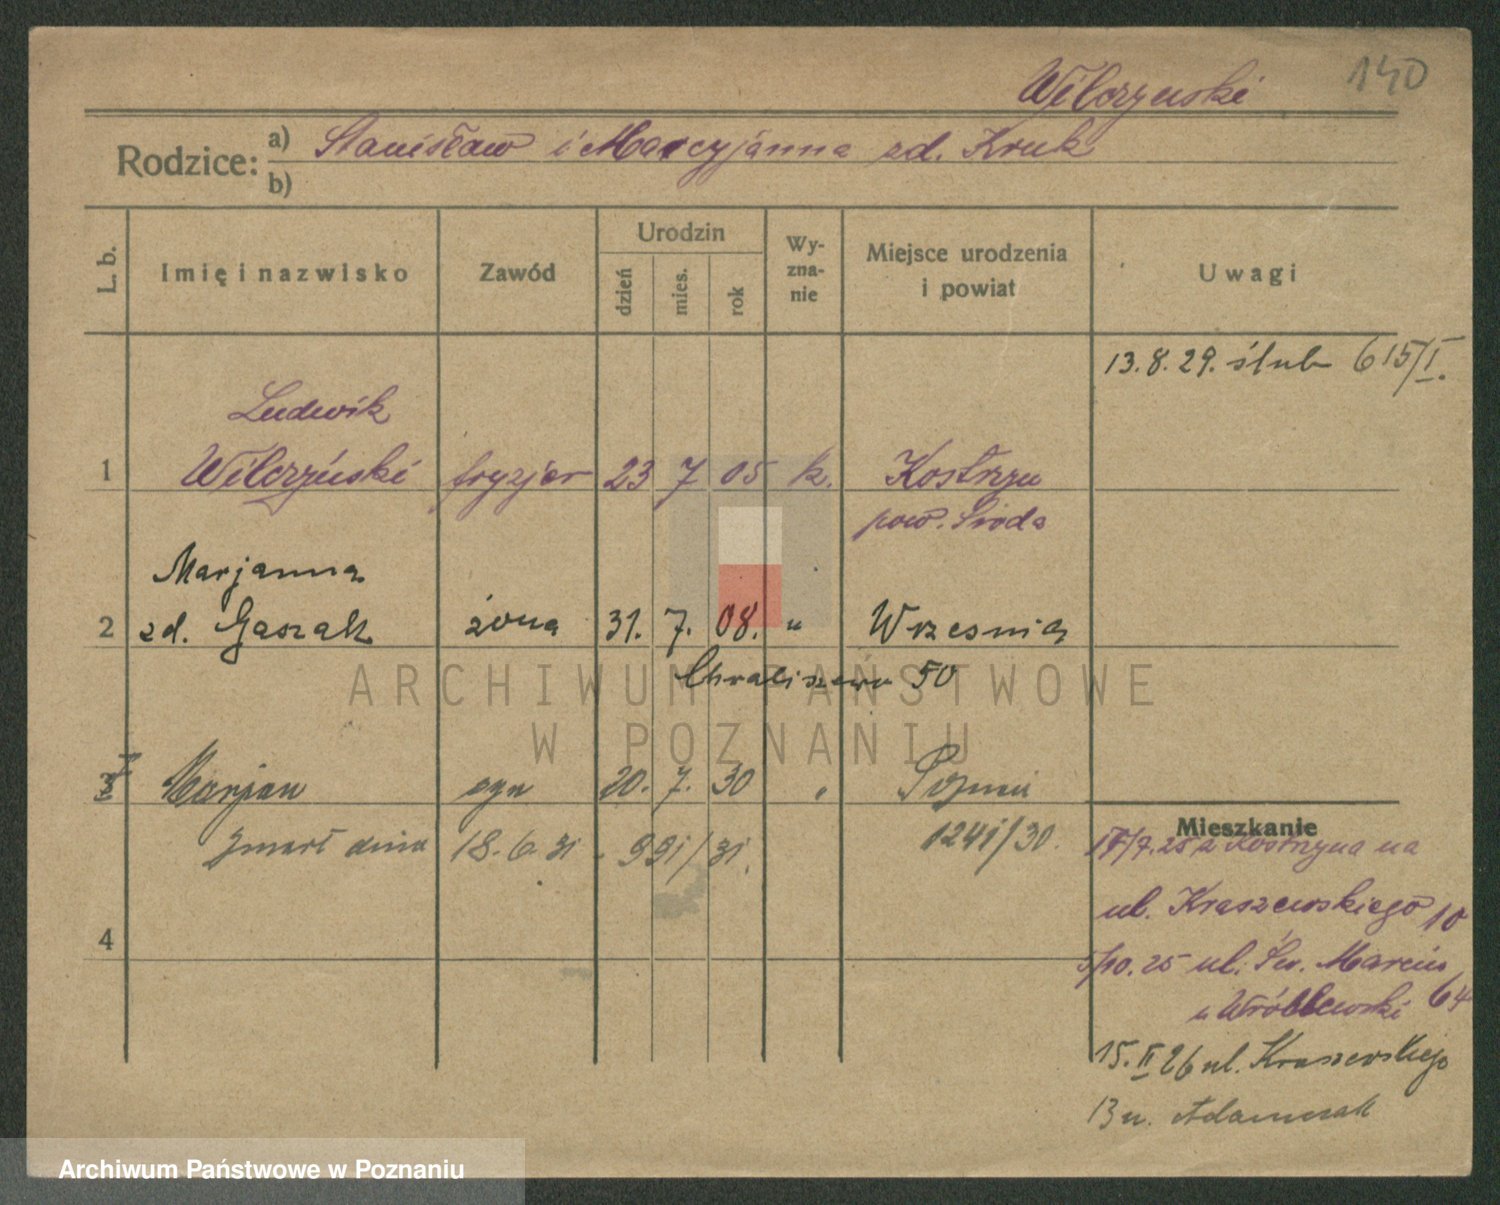 140
Wilczyński
Rodzice: a) Stanisław i Marcyjanna zd. Kruk
b)
L. b.
Imię i nazwisko
Zawód
Urodzin
dzień
mies.
rok
Wy-
zna-
nie
Miejsce urodzenia
i powiat
Uwagi
13.8.29. ślub 615/I.
Ludwik
1 Wilczyński fryzjer 23 7 05 k. Kostrzyn
pow. Środa
Marjanna
2 zd. Gaszak żona 31. 7. 08. " Września
Chwaliszewo 50
3 Marjan syn 20. 7. 30 " Poznań
zmarł dnia 18.6.31. 991/31. 1241/30.
4
Mieszkanie
17/7.25 z Kostrzyna na
ul. Kraszewskiego 10
5/10.25 ul. Św. Marcin 64
u Wróblewski
15.II 26 ul. Kraszewskiego
13 u. Adamczak
ARCHIWUM PAŃSTWOWE
W POZNANIU
Archiwum Państwowe w Poznaniu